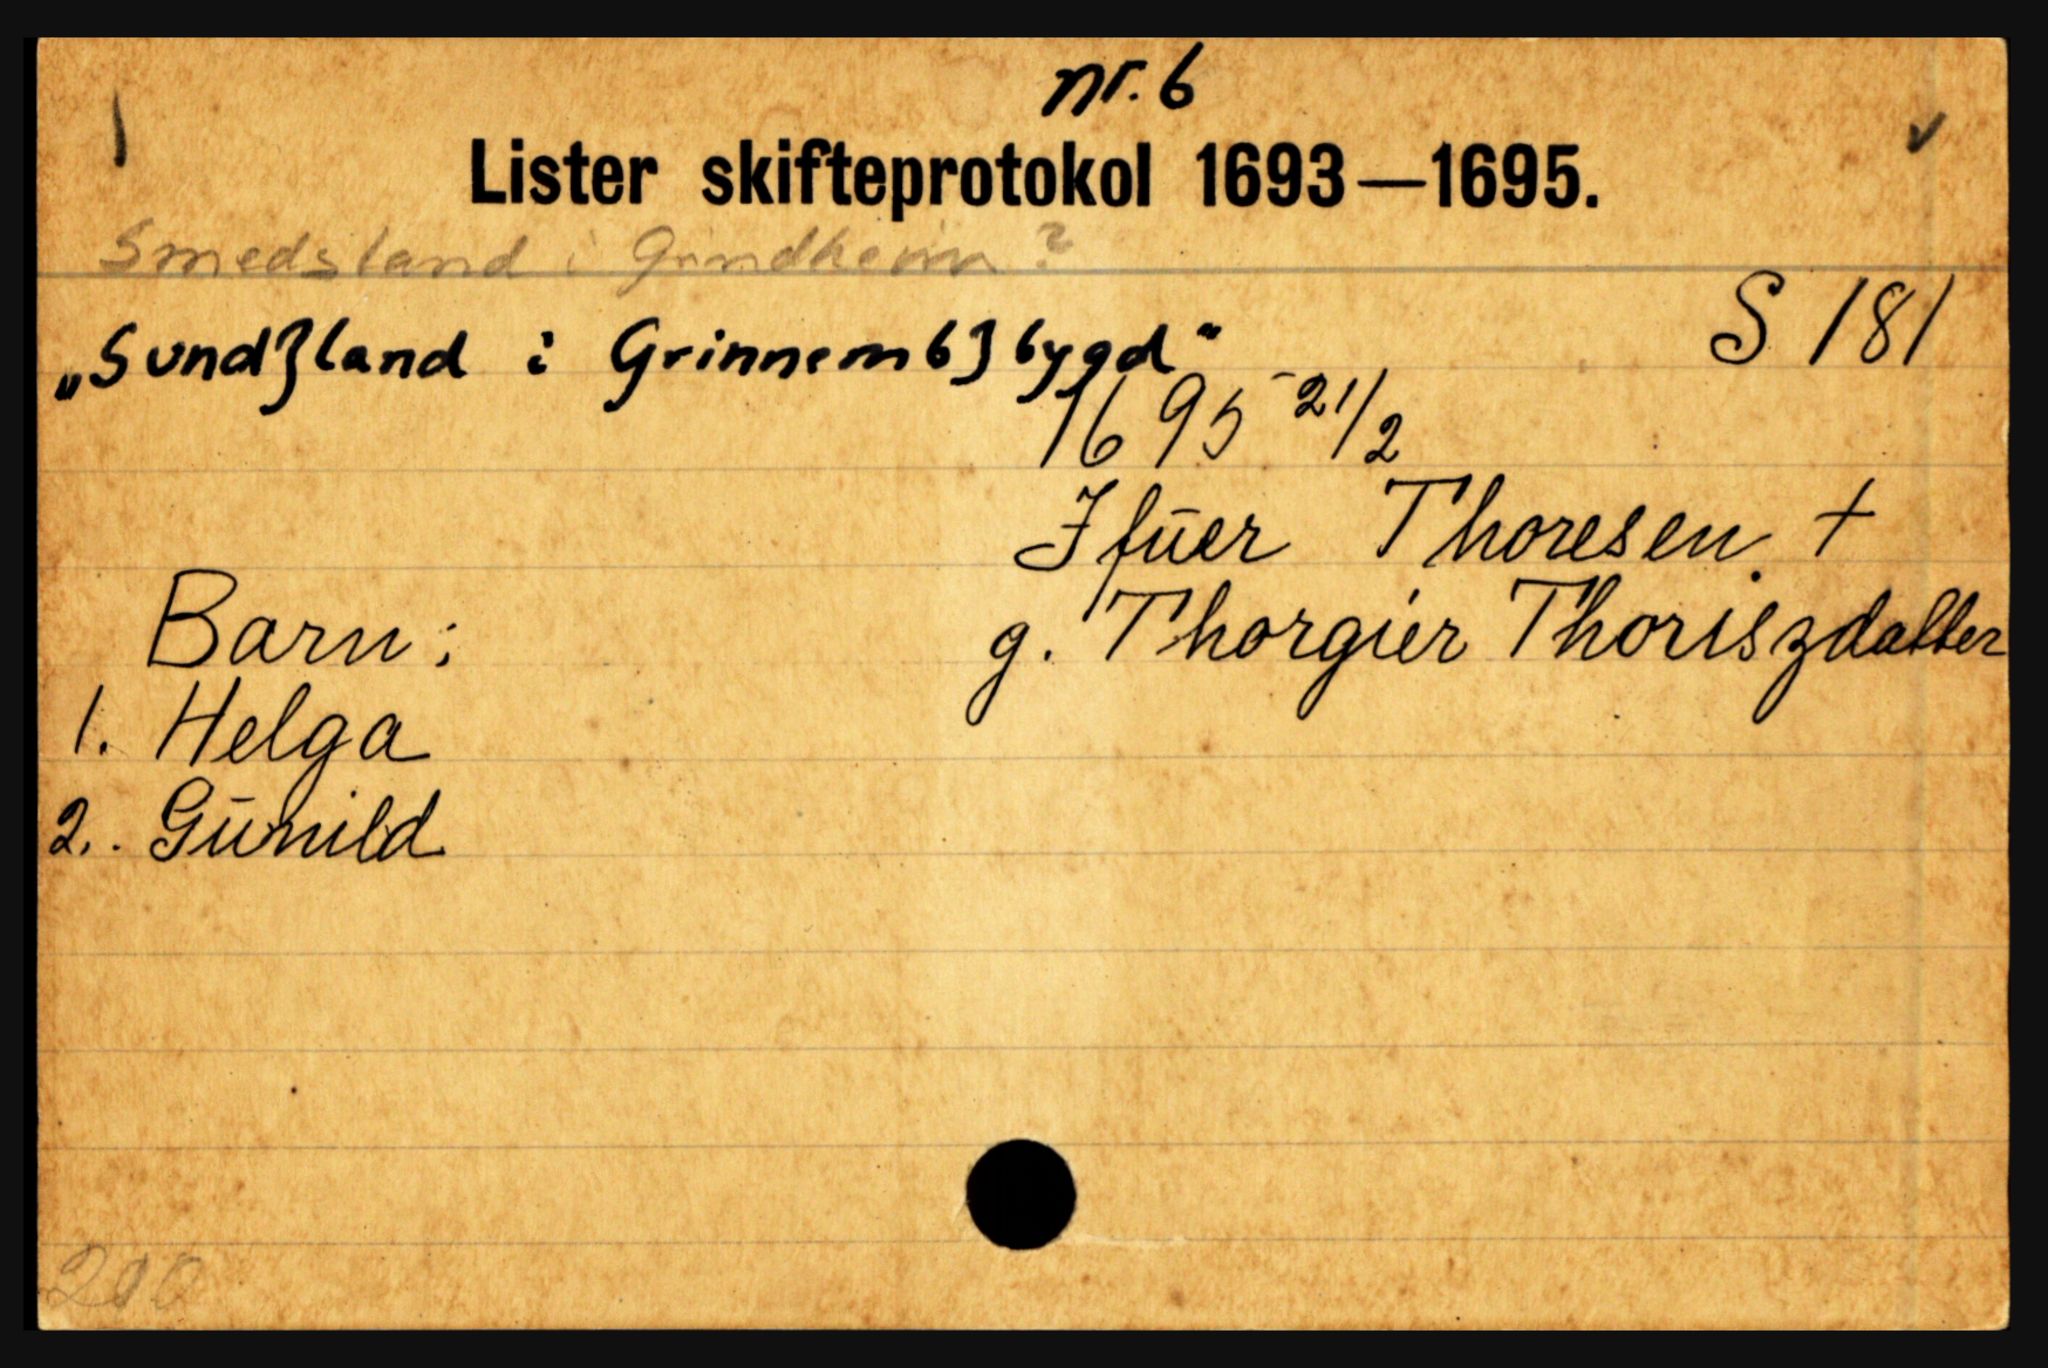 nr. 6
1
✓
Lister skifteprotokol 1693—1695.
Smedsland i Grindheim?
S 181
„Sundʒland i Grinnembʒbygd“
1695 - 21/2
Jfūer Thoresen. +
Barn:
g. Thorgier Thoriszdatter
1. Helga
2. Gūnild
200